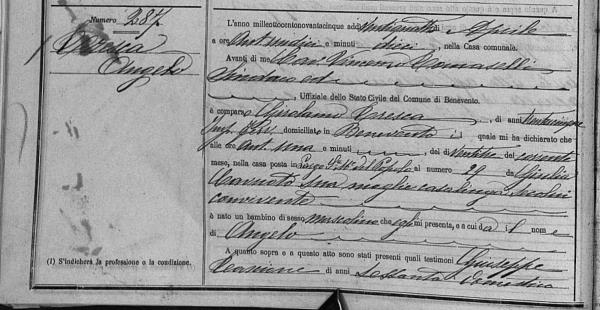 Numero 287
Cresca
Angelo
L'anno millottocentonovantacinque addì ventiquattro Aprile
a ore Ant. undici e minuti dieci, nella Casa comunale.
Avanti di me Cav. Vincenzo
Sindaco ed
, Uffiziale dello Stato Civile del Comune di Benevento,
è comparso Girolamo Cresca, di anni trentacinque
domiciliato in Benevento, quale mi ha dichiarato
che alle ore Ant. una e minuti, del dì ventitre del corrente
mese, nella casa posta in Largo S.ta M.a del Popolo al numero 28 da
sua moglie casalinga seco lui
convivente
è nato un bambino di sesso mascolino che egli mi presenta, e a cui dà il nome
di Angelo
A quanto sopra e a questo atto sono stati presenti quali testimoni Giuseppe
di anni sessanta
(1) S'indicherà la professione o la condizione.